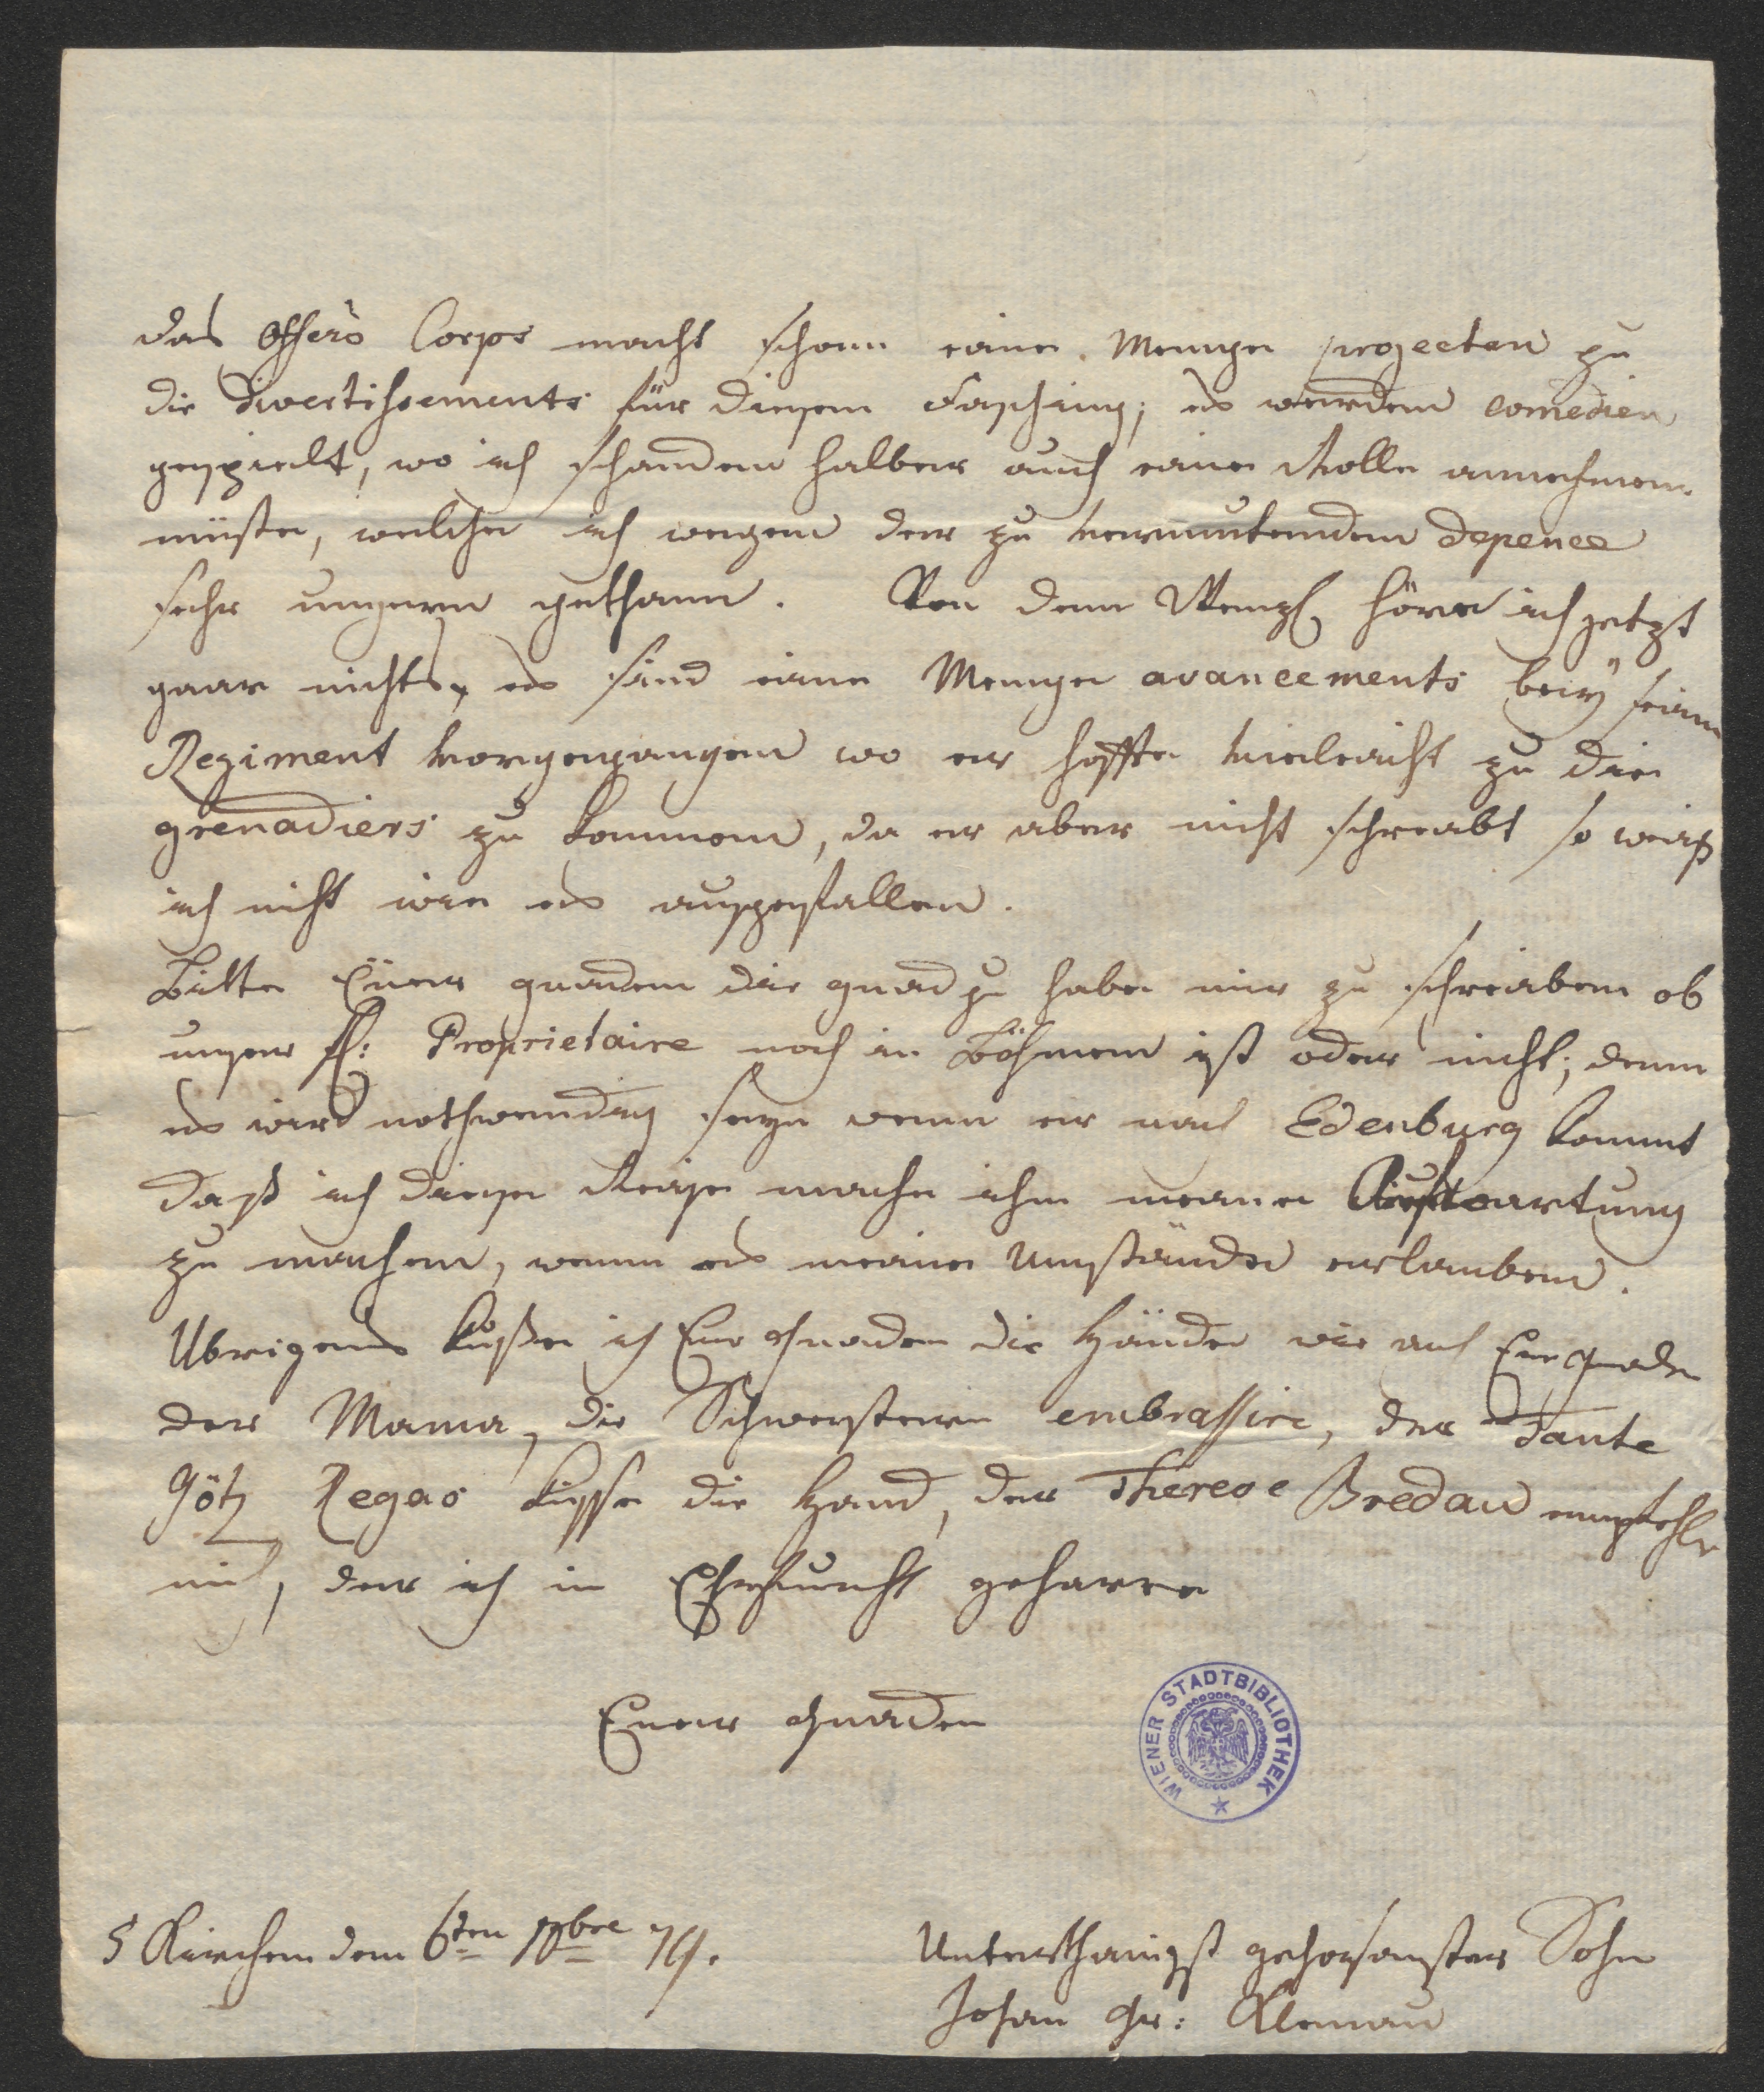 das Offers Corps macht schon eine Menge projecten zu
die Divertissements für diesen Fasching; es werden comedien
gespielt, wo ich schanden halber auch eine Rolle annehmen
müste, welche ich wegen der zu vermutenden depence
sehr ungern gethann. Von dem Wenzl höre ich jetzt
gaar nichts, es sind eine Menge avancements beÿ seinem
Regiment vorgegangen wo er hoffte vieleicht zu die
grenadiers zu kommen, da er aber nicht schreibt so weiß
ich nicht wie es ausgefallen.
Bitte Eüer gnaden die gnad zu haben mir zu schreiben ob
unser H: Proprietaire noch in Böhmen ist oder nicht; denn
es wird nothwendig seyn wenn er nach Edenburg kommt
daß ich diese Reise mache ihm meine Aufwartung
zu machen, wenn es meine Umstände erlauben.
Ubrigens kuße ich Euer Gnaden die Hände wie auch Euer Gnaden
der Mama, die Schwestern embrassire, der Tante
Götz Regas küsse die Hand, der Therese Bredau empfehle
mich, der ich in Ehrfurcht geharre
Euer Gnaden
WIENER STADTBIBLIOTHEK
5 Kirchen den 6ten Xbre 74.
Unterthänigst gehorsamster Sohn
Johan Gr: Klenau